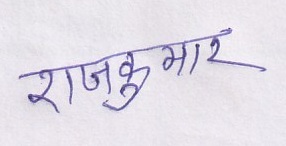 राजकुमार